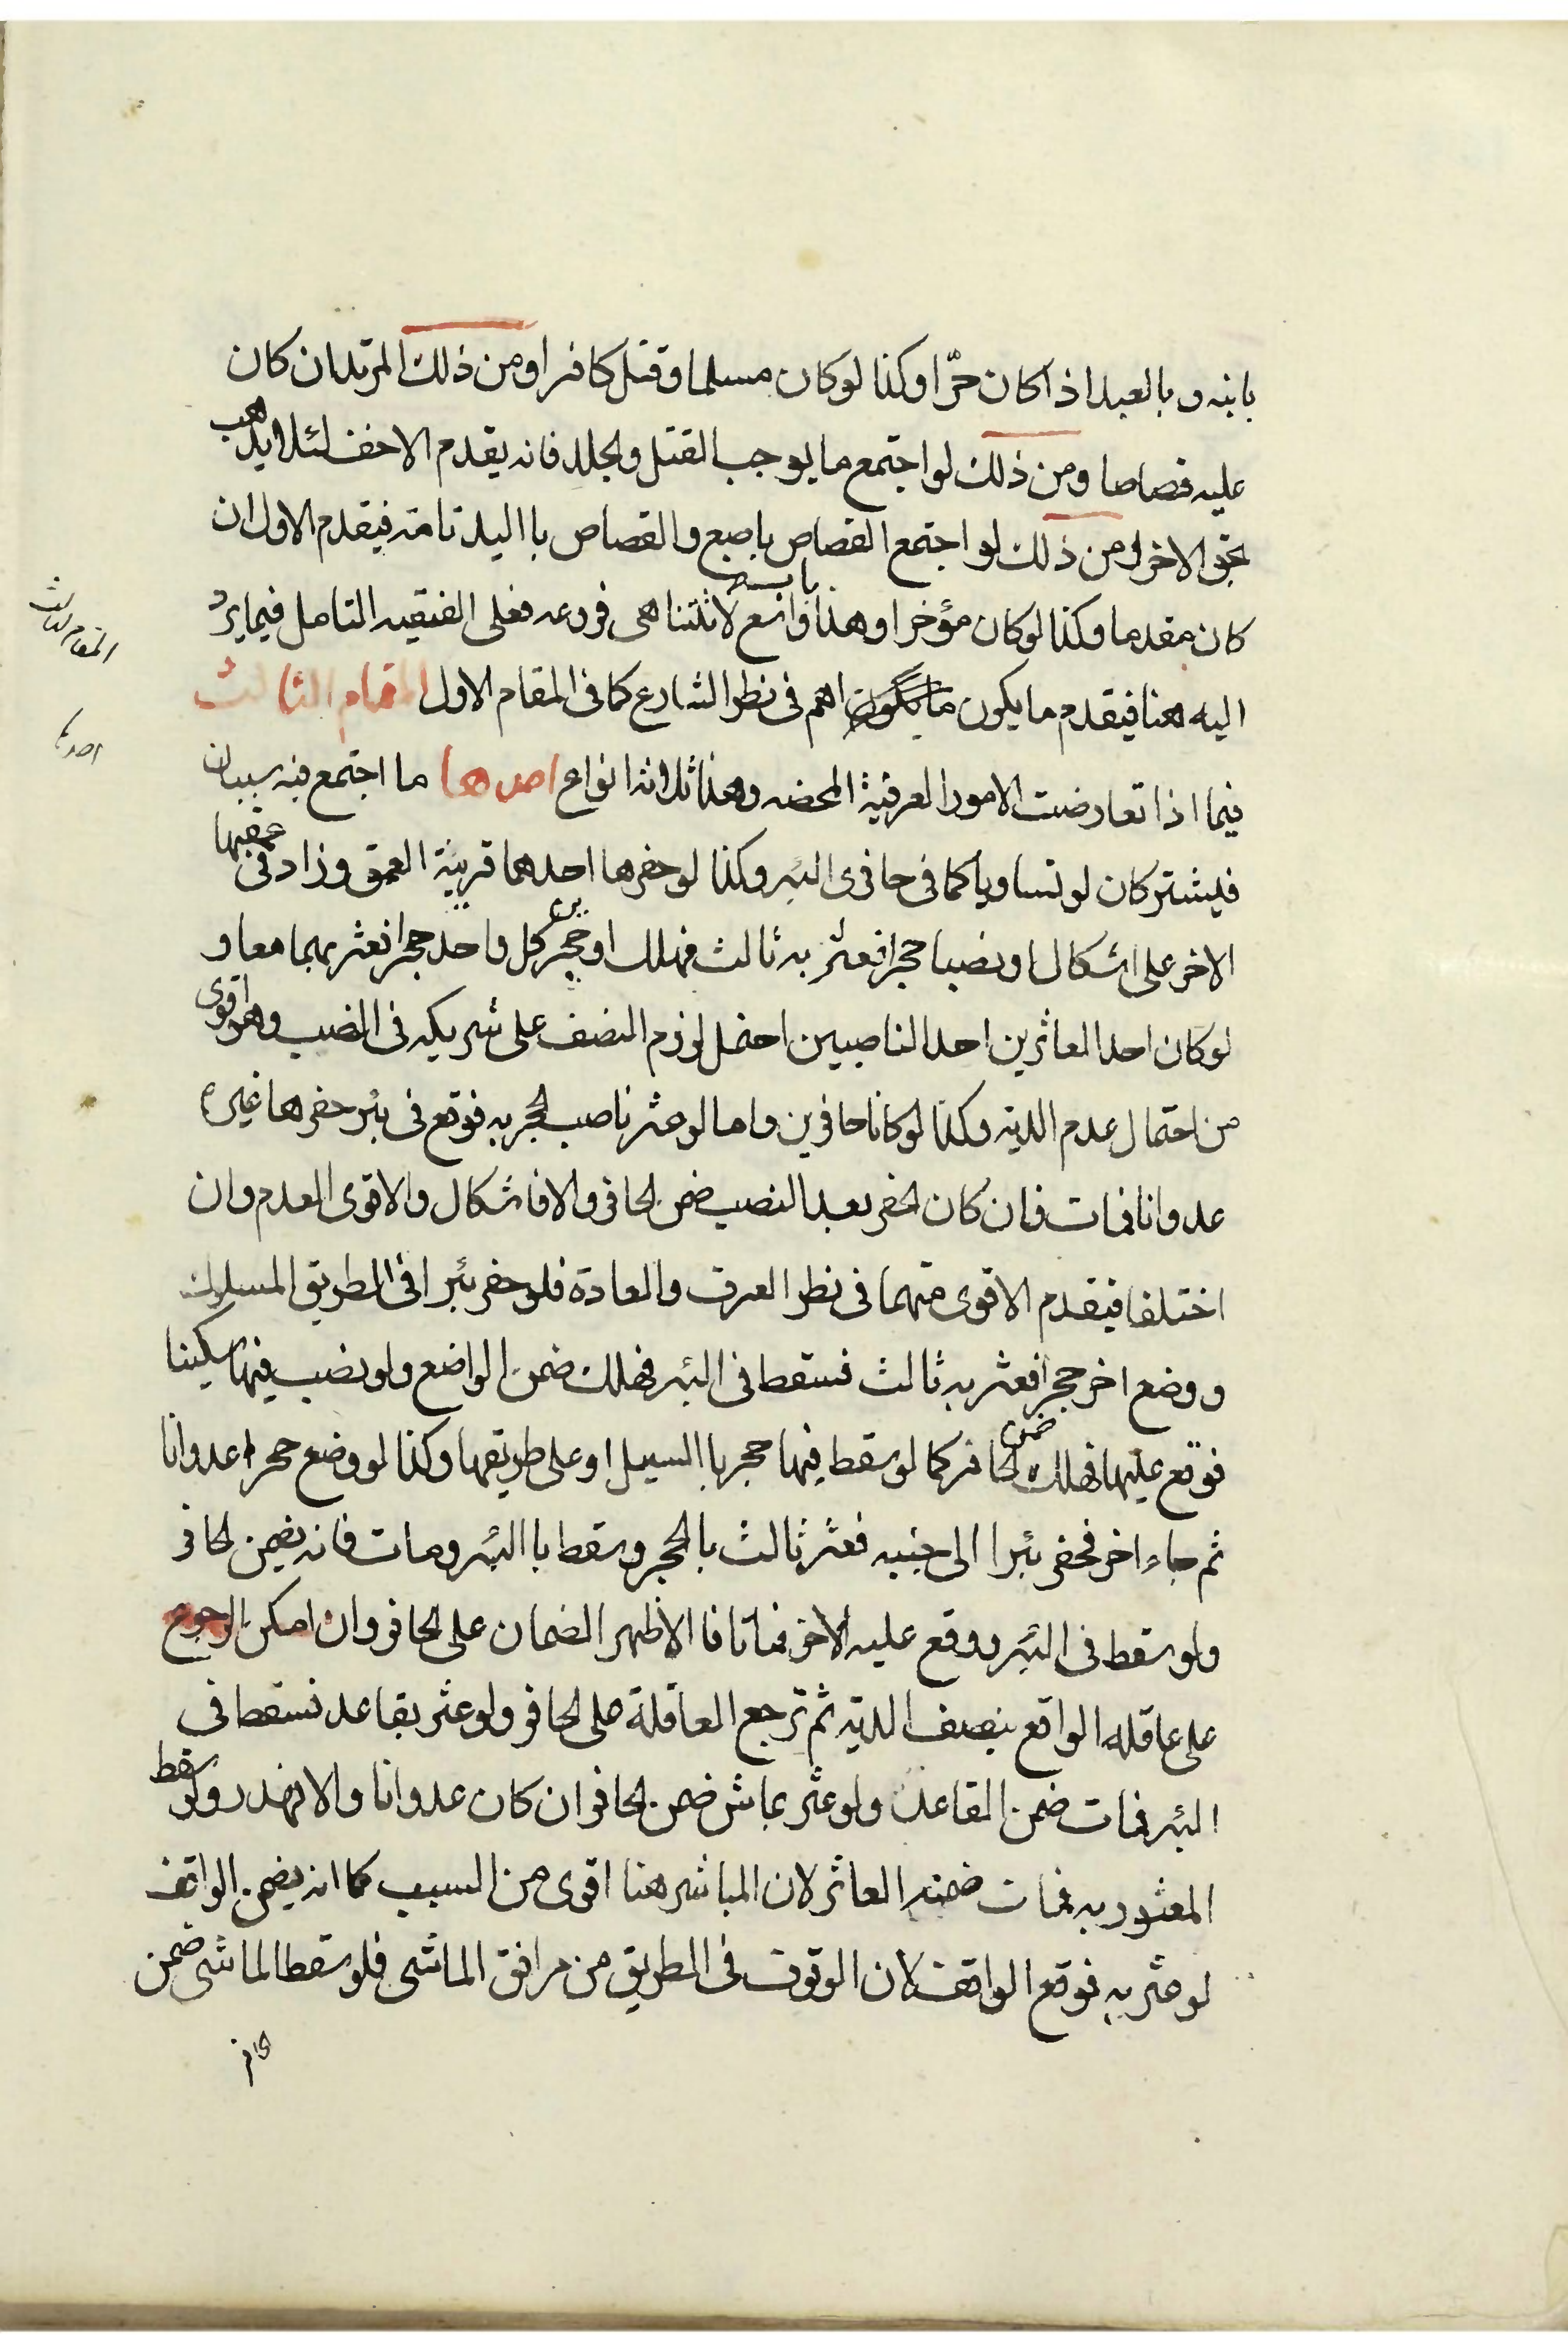 بابنه وبالعبد اذا كان حرّا وكذا لو كان مسلما وقتل كافرا ومن ذلك المرتد ان كان
عليه قصاصا ومن ذلك لو اجتمع ما يوجب القتل والجلد فانه يقدم الاخف لئلا يذهب
بحق الاخر ومن ذلك لو اجتمع القصاص باصبع والقصاص بااليد تامة فيقدم الاول ان
كان مقدما وكذا لو كان مؤخرا وهذا باب واسع لا تتناهى فروعه فعلى الفقيه التامل فيما يردُ
اليه هنا فيقدم ما يكون اهم فى نظر الشارع كما فى المقام الاول المقام الثالث
فيما اذا تعارضت الامور العرفية المحضه وهنا ثلاثة انواع احدها ما اجتمع فيه سببان
فيشتركان لو تساويا كما فى حافرى البئر وكذا لو حفرها احدهما قريبة العمق وزاد فى عمقها
الاخر على اشكال او نصبا حجرا فعثر به ثالث فهلك او حجر كل واحد حجرا فعثر بهما معا و
لو كان احد العاثرين احد الناصبين احتمل لزوم النصف على شريكه فى النصب وهو اقوى
من احتمال عدم الدية وكذا لو كانا حافرين واما لو عثر ناصب الحجر به فوقع فى بئر حفرها غيره
عدوانا فمات فان كان الحفر بعد النصب ضمن الحافر والا فاشكال والاقوى العدم وان
اختلفا فيقدم الاقوى منهما فى نظر العرف والعادة فلو حفر بئرا فى الطريق المسلوك
ووضع اخر حجرا فعثر به ثالث فسقط فى البئر فهلك ضمن الواضع ولو نصب فيها سكينا
فوقع عليها فهلك ضمن الحافر كما لو سقط فيها حجر باالسيل او على طريقها وكذا لو وضع حجرا عدوانا
ثم جاء اخر فحفر بئرا الى جنبه فعثر ثالث بالحجر وسقط باالبئر ومات فانه يضمن الحافر
ولو سقط فى البئر ووقع عليه الاخر فماتا فا الاظهر الضمان على الحافر وان امكن الرجوع
على عاقلة الواقع بنصف الدية ثم ترجع العاقلة على الحافر ولو عثر بقاعد فسقط فى
البئر فمات ضمن القاعد ولو عثر بماش ضمن الحافر ان كان عدوانا والا فهدر ولو سقط
المعثور به فمات ضمنه العاثر لان المباشر هنا اقوى من السبب كما انه يضمن الواقف
لو عثر به فوقع الواقف لان الوقوف فى الطريق من مرافق الماشى فلو سقط الماشى ضمن
المقام الثالث
احدها